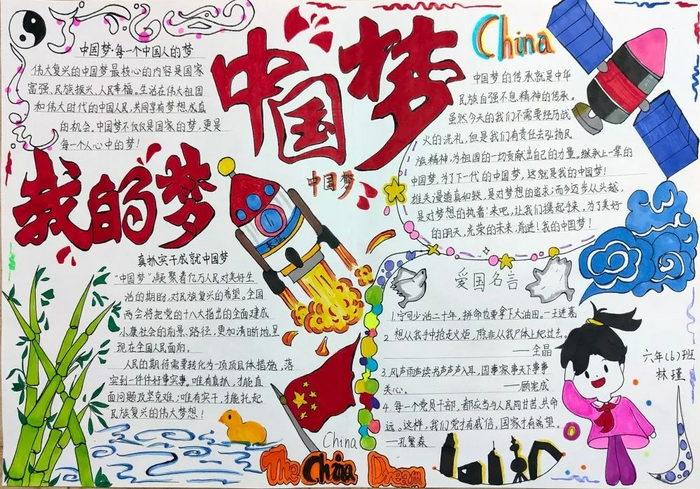 中国梦·每一个中国人的梦
伟大复兴的中国梦最核心的内容是国家
富强、民族振兴、人民幸福。生活在伟大祖国
和伟大时代的中国人民,共同享有梦想成真
的机会。中国梦不仅仅是国家的梦,更是
每一个人心中的梦!
中国梦
China
中国梦的传承就是中华
民族自强不息精神的传承。
虽然今天的我们不需要经历战
火的洗礼,但是我们有责任去弘扬民
族精神,为祖国的一切贡献出自己的力量。继承上一辈的
中国梦,为了下一代的中国梦,这就是我的中国梦!
雄关漫道真如铁,是对梦想的追求;而今迈步从头越,
是对梦想的执着!来吧,让我们携起手来,为了美好
的明天,光荣的未来,奔进!我的中国梦!
中国梦
我的梦
真抓实干成就中国梦
“中国梦”凝聚着亿万人民对美好生
活的期盼,对民族复兴的希望。全国
两会将把党的十八大指出的全面建成
小康社会的前景、路径,更加清晰地呈
现在全国人民面前。
人民的期待需要转化为一项项具体措施,落
实到一件件好事实事。唯有真抓,才能直
面问题及坚克难;唯有实干,才能托起
民族复兴的伟大梦想!
爱国名言
1.宁可少活二十年,拼命也要拿下大油田。—王进喜
2.想从我手中抢走火炬,除非从我尸体上纪过去。
——金晶
3.风声雨声读书声声声入耳,国事家事天下事事
关心。——顾宪成
4.每一个党员干部,都应当与人民同甘苦,共命
运。这样,我们党才有威信,国家才有希望。
—孔繁森
六年(6)班
林瑾
China
The China Dream